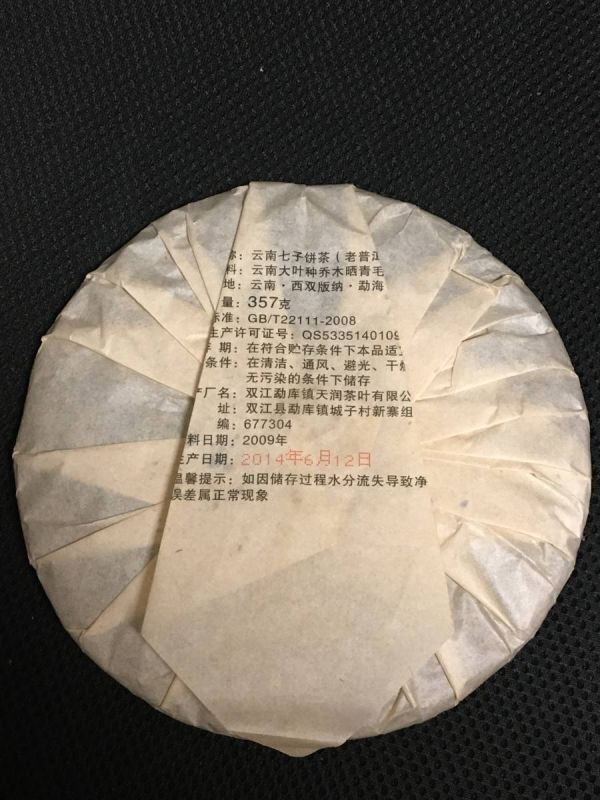 称：云南七子饼茶（老普
料：云南大叶种乔木晒青毛
地：云南·西双版纳·勐海
量：357克
标准：GB/T22111-2008
生产许可证号：QS5335140109
期：在符合贮存条件下本品适
条件：在清洁、通风、避光、干
无污染的条件下储存
厂名：双江勐库镇天润茶叶有限公
址：双江县勐库镇城子村新寨组
编：677304
料日期：2009年
生产日期：2014年6月12日
温馨提示：如因储存过程水分流失导致净
误差属正常现象